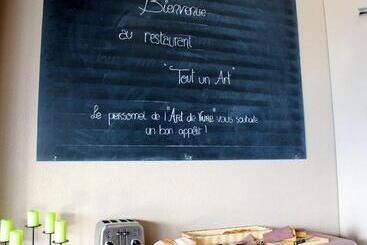 Bienvenue
au restaurant
"Tout un Art"
Le personnel de l'"Art de Vivre" vous souhaite
un bon appétit !